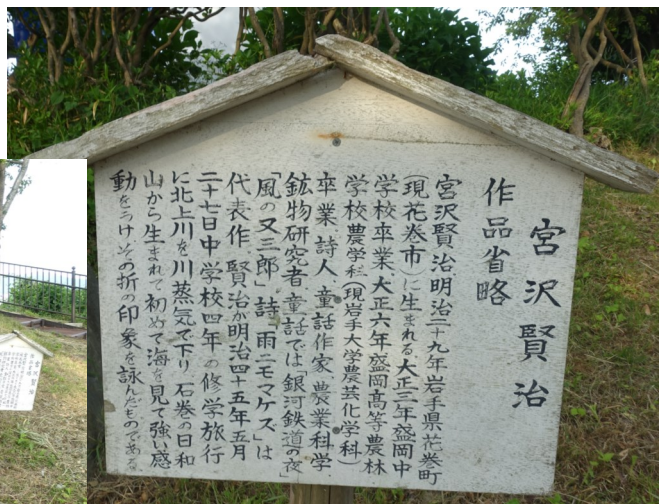 宮沢賢治
作品省略
宮沢賢治、明治二十九年岩手県花巻町
(現花巻市)に生まれる大正三年盛岡中
学校卒業大正六年盛岡高等農林
学校農学科(現岩手大学農芸化学科)
卒業 詩人 童話作家 農業科学、
鉱物研究者、童話では「銀河鉄道の夜」
「風の又三郎」詩「雨ニモマケズ」は
代表作 賢治が明治四十五年五月
二十七日中学校四年の修学旅行
に北上川を川蒸気で下り 石巻の日和
山から生まれて初めて海を見て強い感
動をうけその折の印象を詠んだものである
宮沢賢治